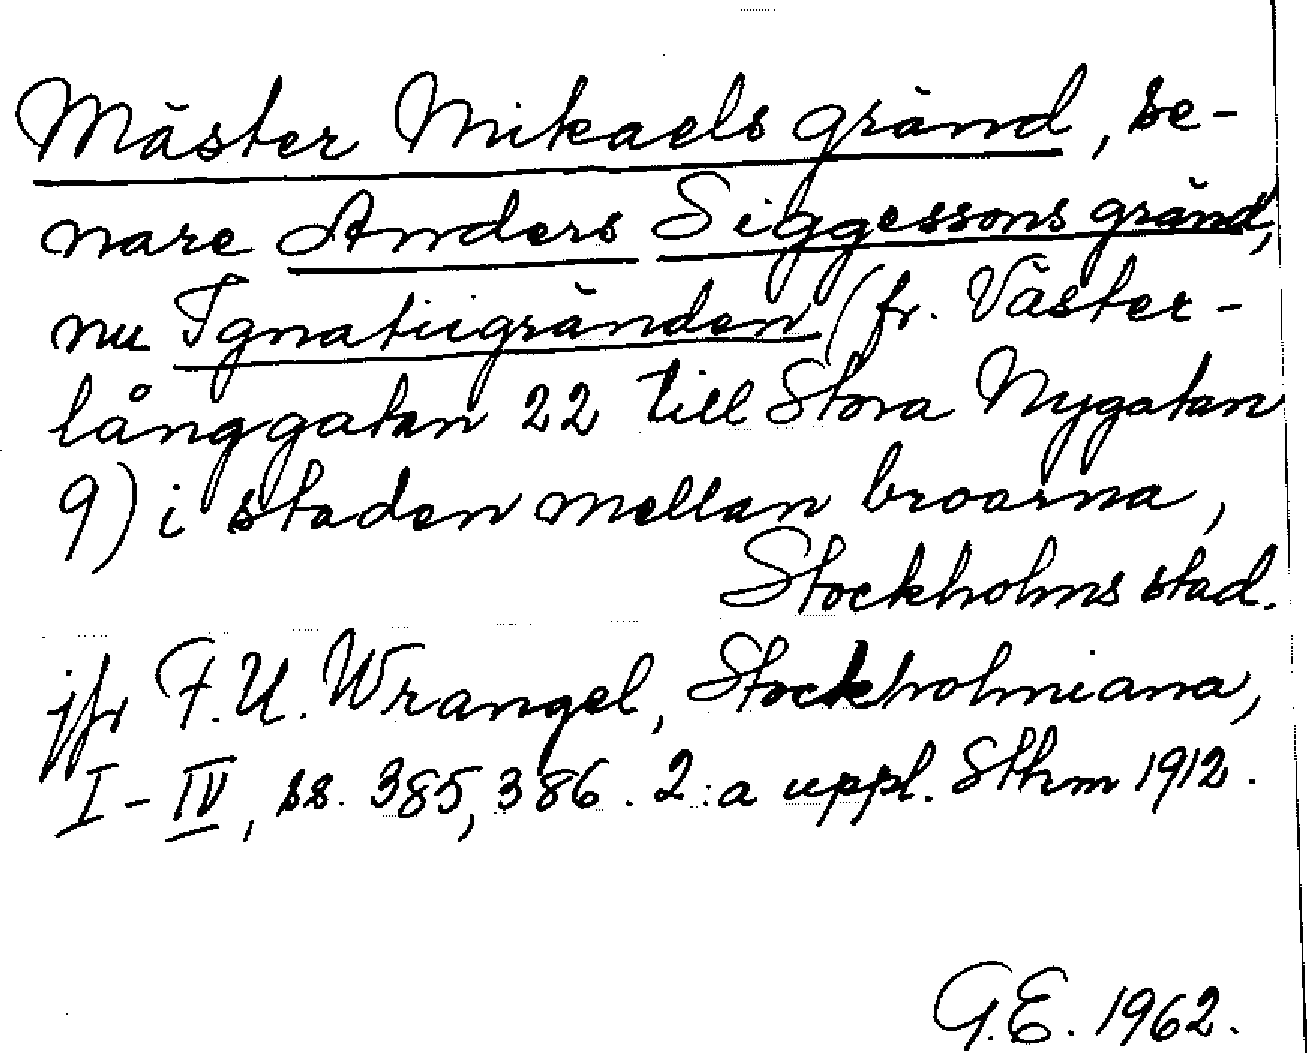 Mäster Mikaels gränd, se-
nare Anders Siggessons gränd,
nu Ignatiigränden (fr. Väster-
långgatan 22 till Stora Nygatan
9) i staden mellan broarna,
Stockholms stad.
jfr F. U. Wrangel, Stockholmiana,
I-IV, ss. 385, 386. 2:a uppl. Sthm 1912.
G.E. 1962.